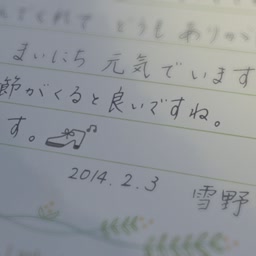 てくれて どうも ありが
まいにち 元気でいます
節がくると良いですね。
す。
2014.2.3 雪野